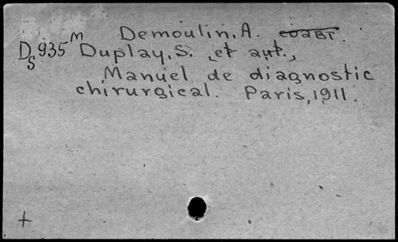 Demoulin, A. coавт.
DS 935 м Duplay, S. et aut.,
Manuel de diagnostic
chirurgical. Paris, 1911.
+